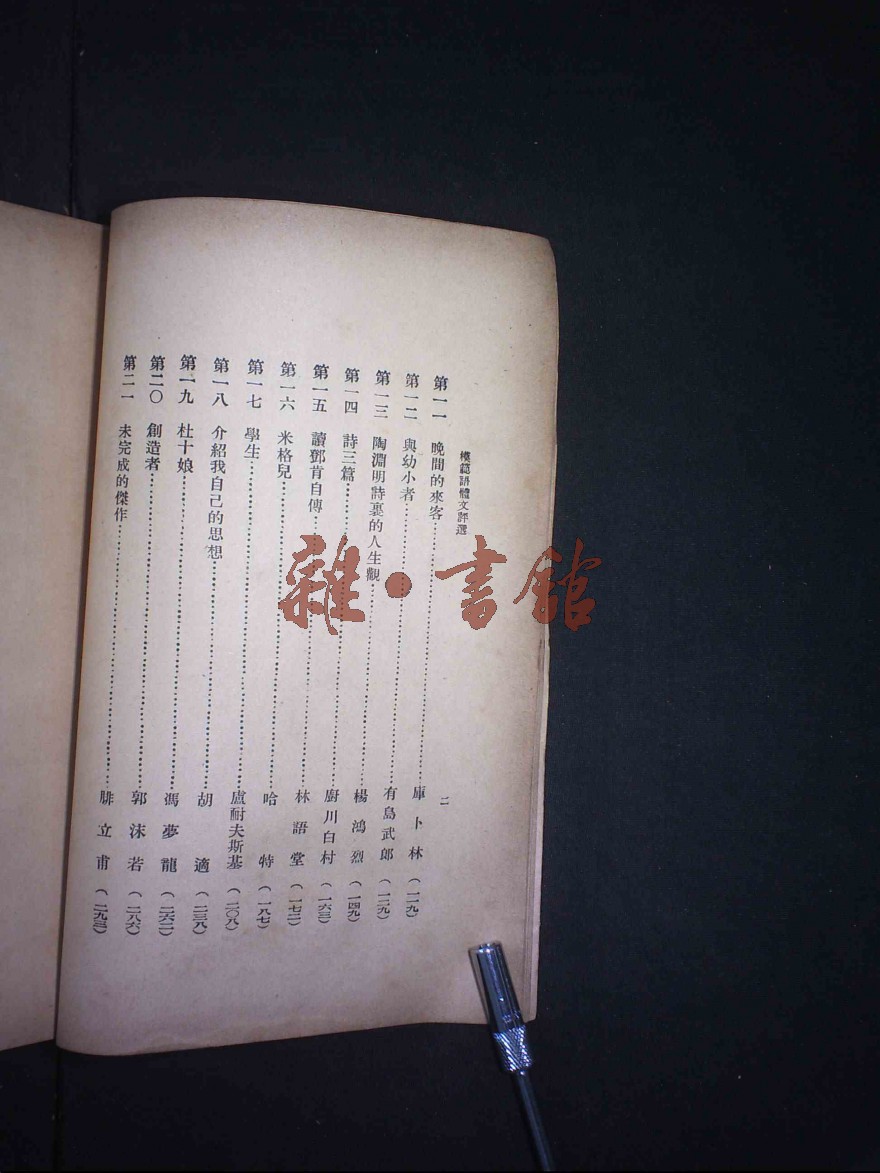 模範語體文評選
二
第一一　晚間的來客……庫卜林（一一九）
第一二　與幼小者……有島武郎（一二九）
第一三　陶淵明詩裏的人生觀……楊鴻烈（一四九）
第一四　詩三篇……廚川白村（一六三）
第一五　讀鄧肯自傳……林語堂（一七二）
第一六　米格兒……哈特（一八七）
第一七　學生……盧耐夫斯基（二〇八）
第一八　介紹我自己的思想……胡適（二三八）
第一九　杜十娘……馮夢龍（二六二）
第二〇　創造者……郭沫若（二八六）
第二一　未完成的傑作……腓立甫（二九三）
雜·書館